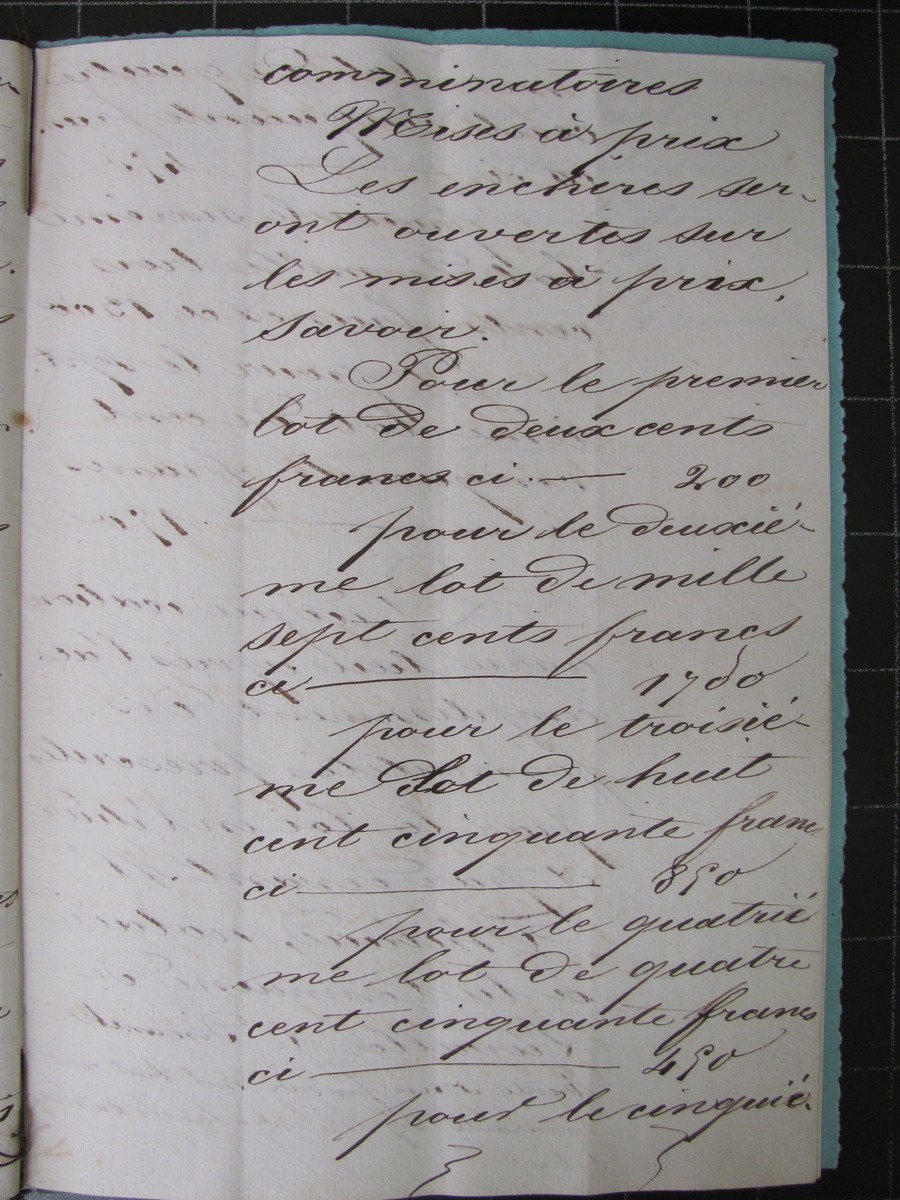 comminatoires
Mises à prix
Les enchères ser-
ont ouvertes sur
les mises à prix,
savoir.
Pour le premier
lot de deux cents
francs ci. — 200
pour le deuxié-
me lot de mille
sept cents francs
ci — 1700
pour le troisié-
me Lot de huit
cent cinquante franc
ci — 850
pour le quatrié
me lot de quatre
cent cinquante francs
ci — 450
pour le cinquié-